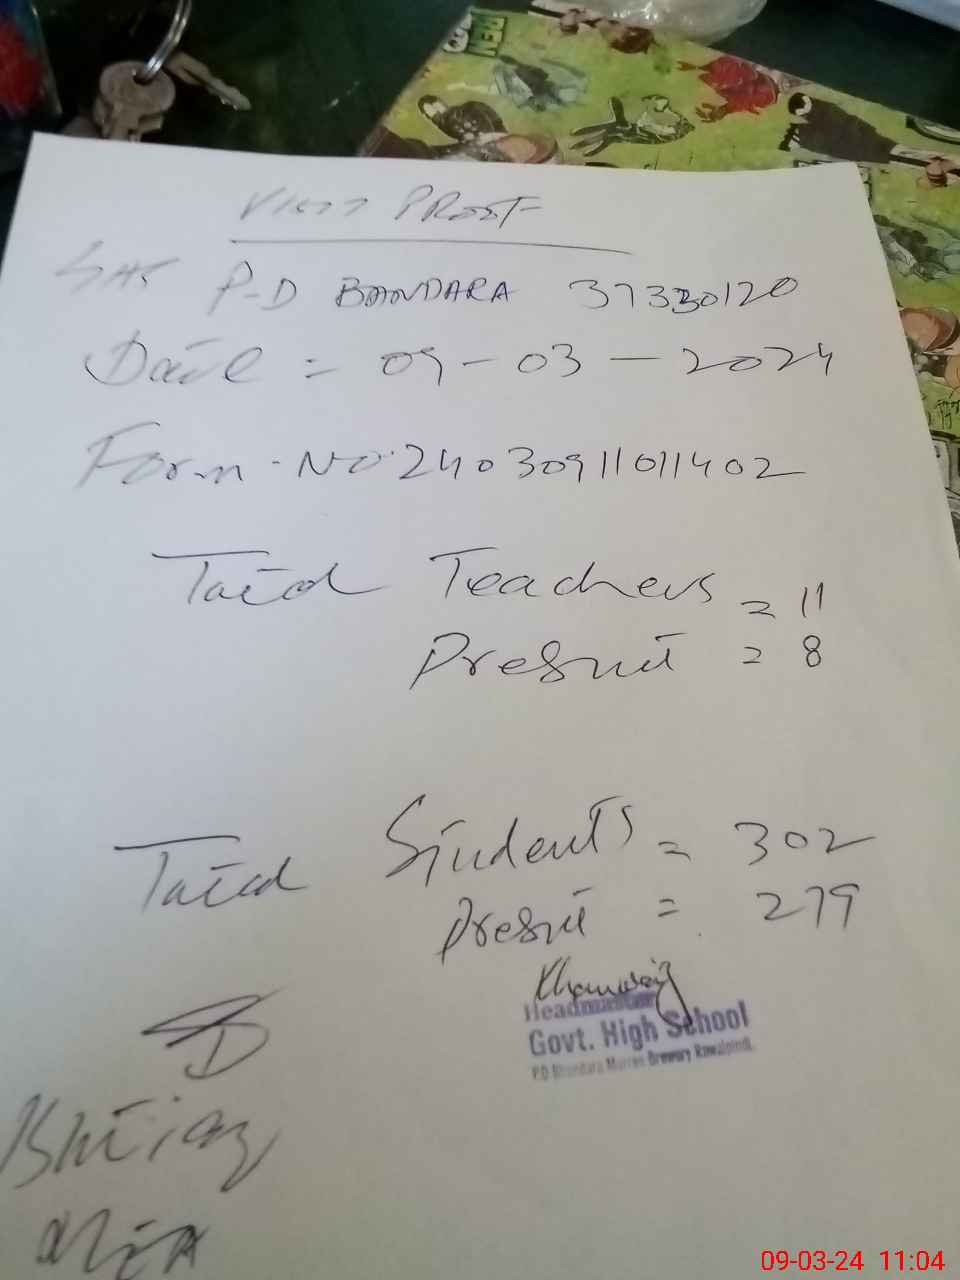 BEN
VISIT PROOF
GHS P-D BANDARA 37330120
Date = 09-03-2024
Form-No.24030911011402
Total Teachers = 11
Present = 8
Total Students = 302
Present = 279
Headmaster
Govt. High School
P.D Bhandara Murree Brewery Rawalpindi
09-03-24 11:04